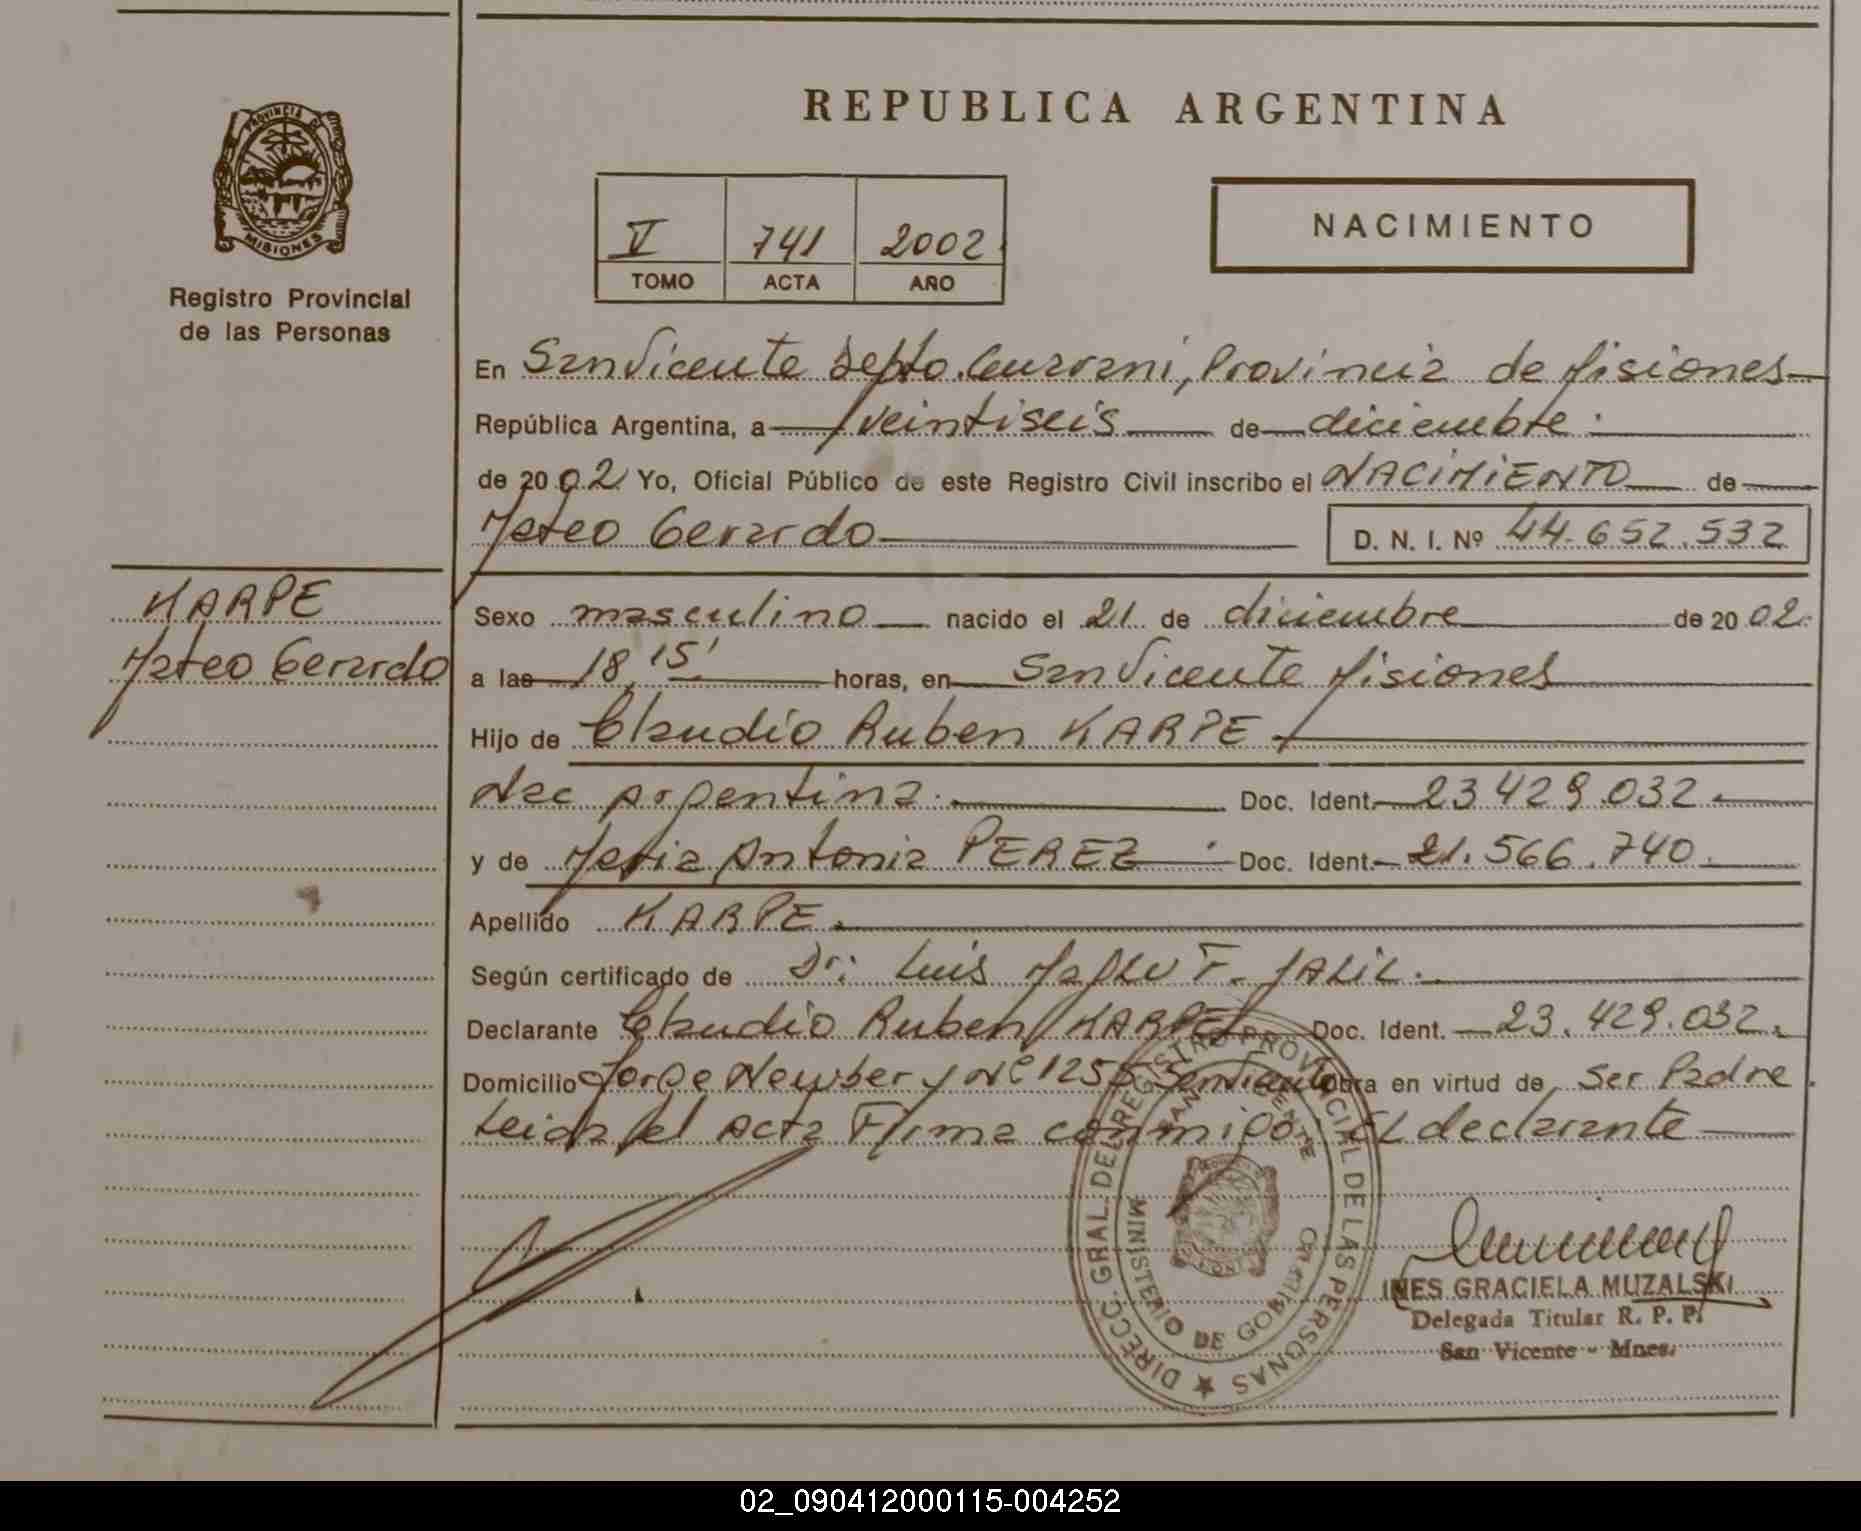 REPUBLICA ARGENTINA
PROVINCIA DE
MISIONES
Registro Provincial
de las Personas
V 741 2002
TOMO ACTA AÑO
NACIMIENTO
En San Vicente Depto. Guarani, Provincia de Misiones
República Argentina, a veintiseis de diciembre
de 2002 Yo, Oficial Público de este Registro Civil inscribo el NACIMIENTO de
Mateo Gerardo D. N. I. Nº 44.652.532
KARPE
Mateo Gerardo
Sexo masculino nacido el 21 de diciembre de 2002
a las 18,15' horas, en San Vicente Misiones
Hijo de Claudio Ruben KARPE
Nac Argentina. Doc. Ident. 23429.032
y de Maria Antonia PEREZ Doc. Ident. 21.566.740
Apellido KARPE
Según certificado de Dr: Luis F. JALIL.
Declarante Claudio Ruben KARPE Doc. Ident. 23.429.032
Domicilio Jorge Newbery Nº 1255 San Vicente Obra en virtud de Ser Padre
Leida el Acta Firma conmigo, EL declarante
DIRECC. GRAL. DEL REGISTRO PROVINCIAL DE LAS PERSONAS
SAN VICENTE
MINISTERIO DE GOBIERNO
INES GRACIELA MUZALSKI
Delegada Titular R. P. P.
San Vicente - Mnes.
02_090412000115-004252